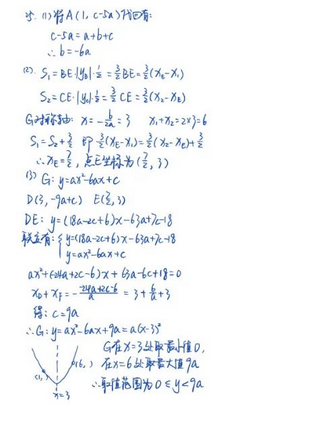 25. (1) 将A(1, c-5a)代回有:
c-5a=a+b+c
∴b=-6a
(2). S₁=BE·|y_D|·½=3/2BE=3/2(x_E-x₁)
S₂=CE·|y_D|½=3/2CE=3/2(x₂-x_E)
G对称轴: x=-b/2a=3 x₁+x₂=2×3=6
S₁=S₂+3/2 即 3/2(x_E-x₁)=3/2(x₂-x_E)+3/2
∴x_E=7/2, 点E坐标为(7/2, 3)
(3) G: y=ax²-6ax+c
D(3, -9a+c) E(7/2, 3)
DE: y=(18a-2c+6)x-63a+7c-18
联立有: {y=(18a-2c+6)x-63a+7c-18
y=ax²-6ax+c
ax²+(-24a+2c-6)x+63a-6c+18=0
x_D+x_F=--24a+2c-6/a=3+6/a+3
得: c=9a
∴G: y=ax²-6ax+9a=a(x-3)²
G在x=3处取最小值0,
在x=6处取最大值9a
∴取值范围为0≤y<9a
x=3